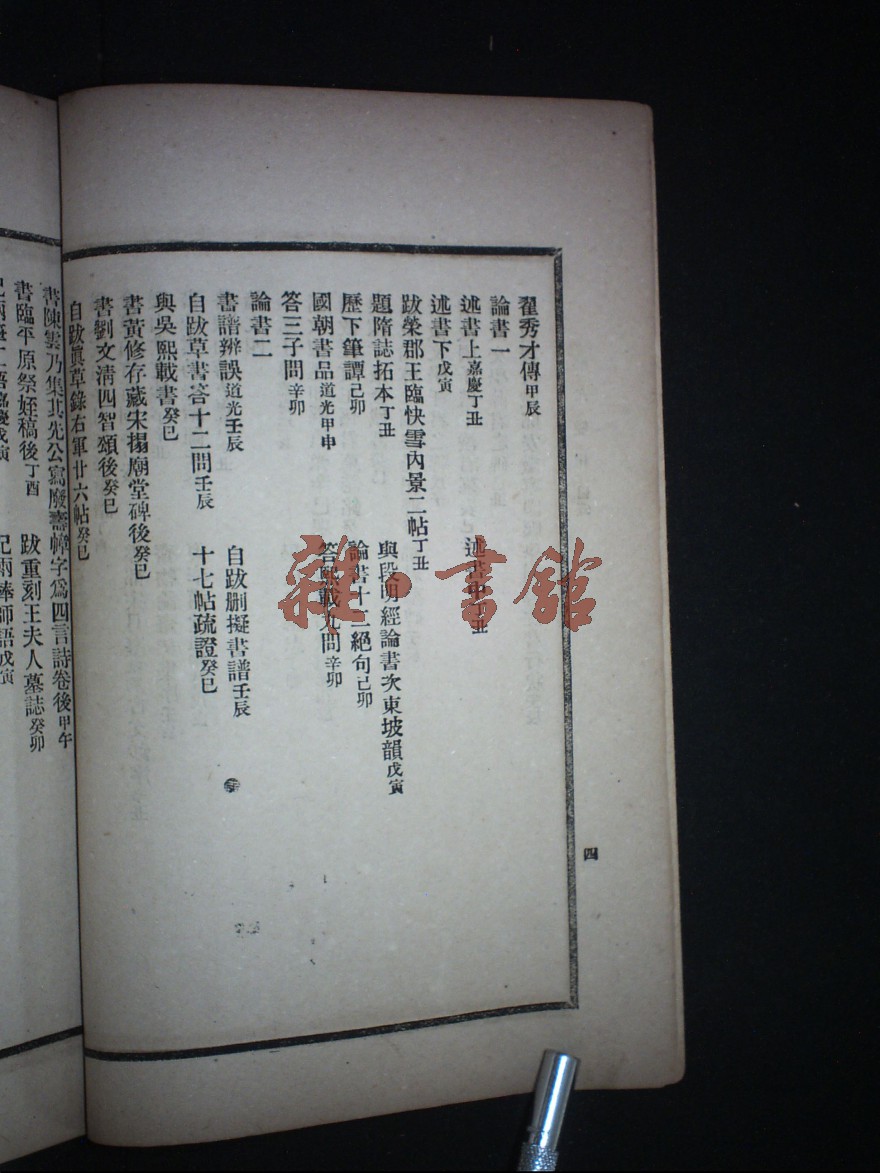 翟秀才傳甲辰
論書一
述書上嘉慶丁丑
述書中丁丑
述書下戊寅
跋榮郡王臨快雪內景二帖丁丑
題隋誌拓本丁丑
與段明經論書次東坡韻戊寅
歷下筆譚己卯
論書十二絕句己卯
國朝書品道光甲申
答熙載九問辛卯
答三子問辛卯
論書二
書譜辨誤道光壬辰
自跋刪擬書譜壬辰
自跋草書答十二問壬辰
十七帖疏證癸巳
與吳熙載書癸巳
書黃修存藏宋搨廟堂碑後癸巳
書劉文清四智頌後癸巳
自跋眞草錄右軍廿六帖癸巳
書陳雲乃集其先公寫廢壽幛字爲四言詩卷後甲午
書臨平原祭姪稿後丁酉
跋重刻王夫人墓誌癸卯
記兩棒師語戊寅
四
雜·書館